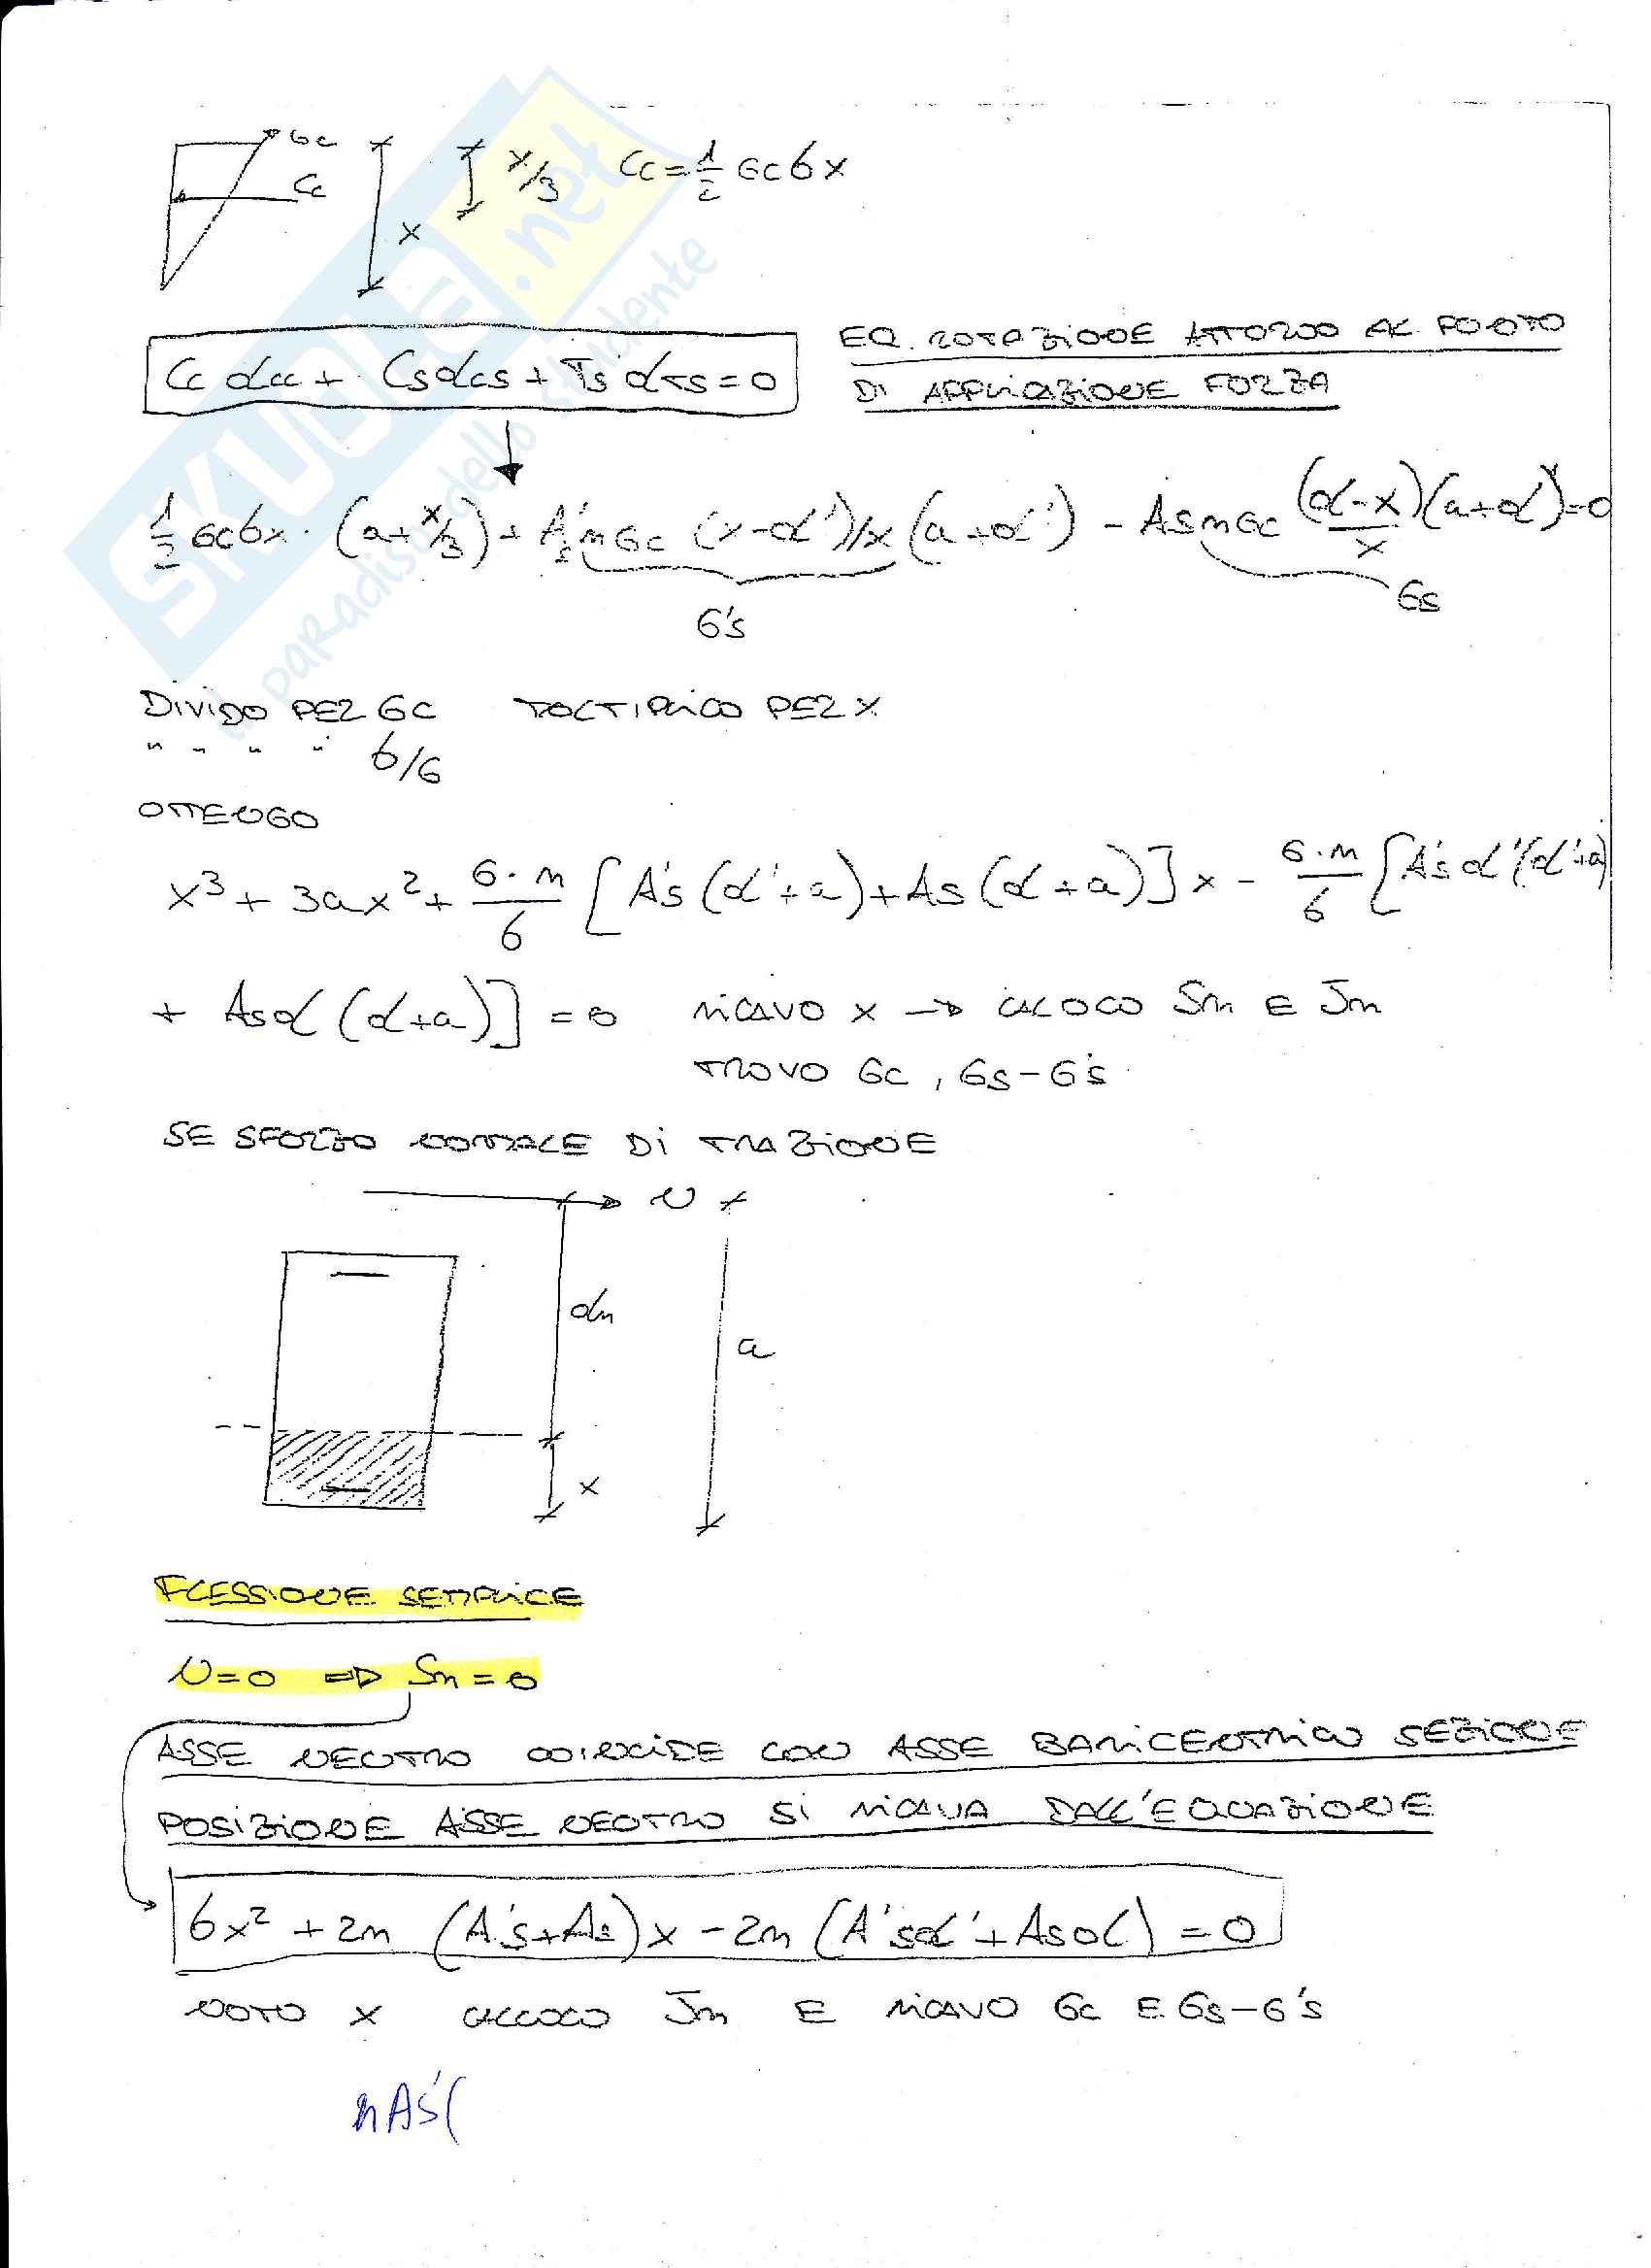 σc
Cc
x
x/3
Cc = 1/2 σc b x
Cc dcc + Cs dcs + Ts dTs = 0
EQ. ROTAZIONE ATTORNO AL PUNTO
DI APPLICAZIONE FORZA
1/2 σc b x · (a + x/3) + A's n σc (x-d')/x (a+d') - As n σc (d-x)/x (a+d) = 0
σ's
σs
DIVIDO PER σc MOLTIPLICO PER X
" " " " b/6
OTTENGO
x³ + 3ax² + 6·n/b [A's (d'+a) + As (d+a)] x - 6·n/b [A's d' (d'+a)
+ As d (d+a)] = 0 RICAVO x → CALCOLO Sn E Jn
TROVO σc, σs - σ's
SE SFORZO NORMALE DI TRAZIONE
N
dn
a
x
FLESSIONE SEMPLICE
N = 0 ⇒ Sn = 0
ASSE NEUTRO COINCIDE CON ASSE BARICENTRICO SEZIONE
POSIZIONE ASSE NEUTRO SI RICAVA DALL'EQUAZIONE
bx² + 2n (A's + As) x - 2n (A's d' + As d) = 0
NOTO x CALCOLO Jn E RICAVO σc E σs - σ's
nA's(
SKUOLA.net
il paradiso dello studente